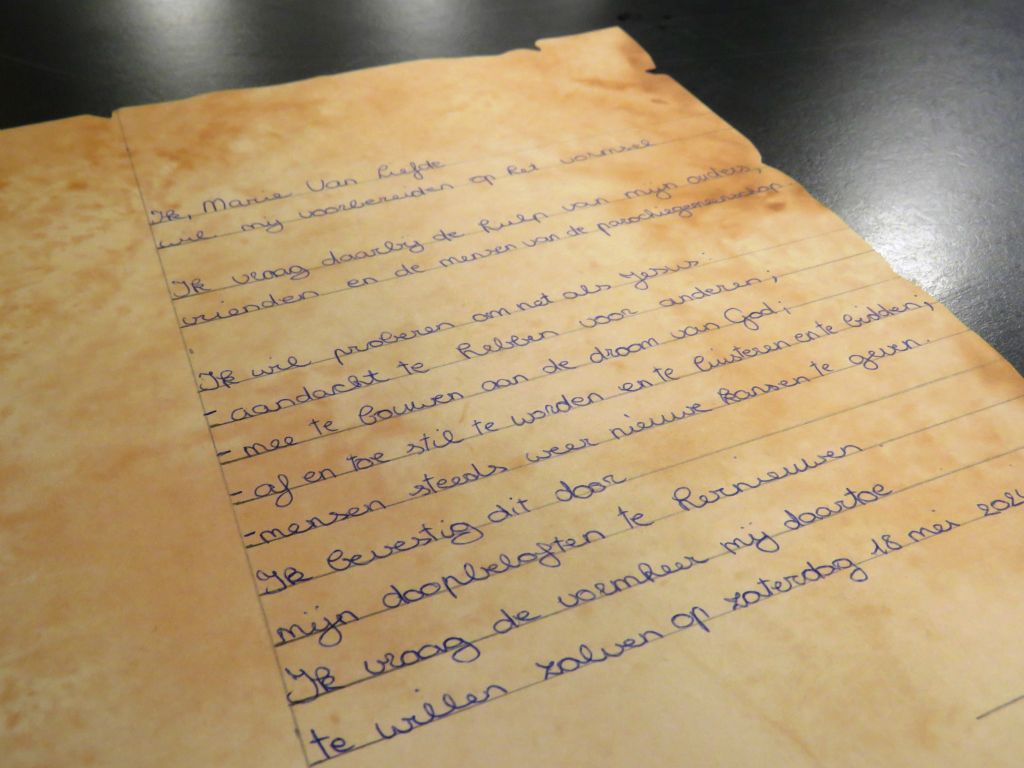 Ik, Marie Van Liefde
wil mij voorbereiden op het vormsel
Ik vraag daarbij de hulp van mijn ouders,
vrienden en de mensen van de parochiegemeenschap
Ik wil proberen om net als Jesus:
- aandacht te hebben voor anderen;
- mee te bouwen aan de droom van God;
- af en toe stil te worden en te luisteren en te bidden;
- mensen steeds weer nieuwe kansen te geven.
Ik bevestig dit door
mijn doopbeloften te hernieuwen.
Ik vraag de vormheer mij daartoe
te willen zalven op zaterdag 18 mei